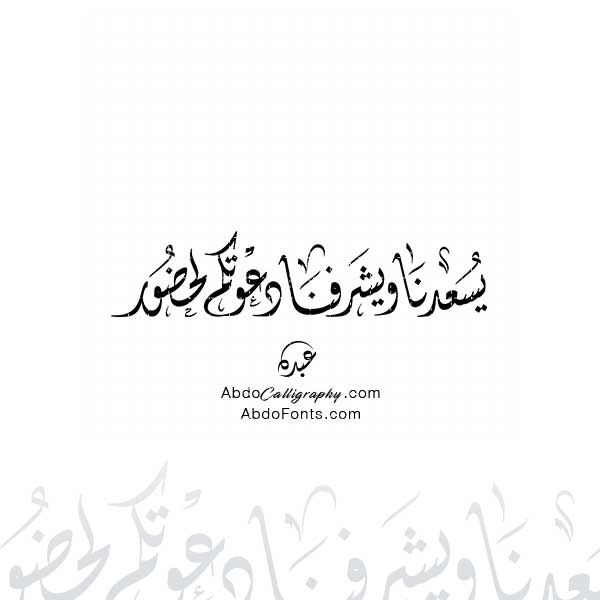 يُسعدنا ويشرفنا دعوتكم لحضُور
عبده
AbdoCalligraphy.com
AbdoFonts.com
يسعدنا ويشرفنا دعوتكم لحضُور